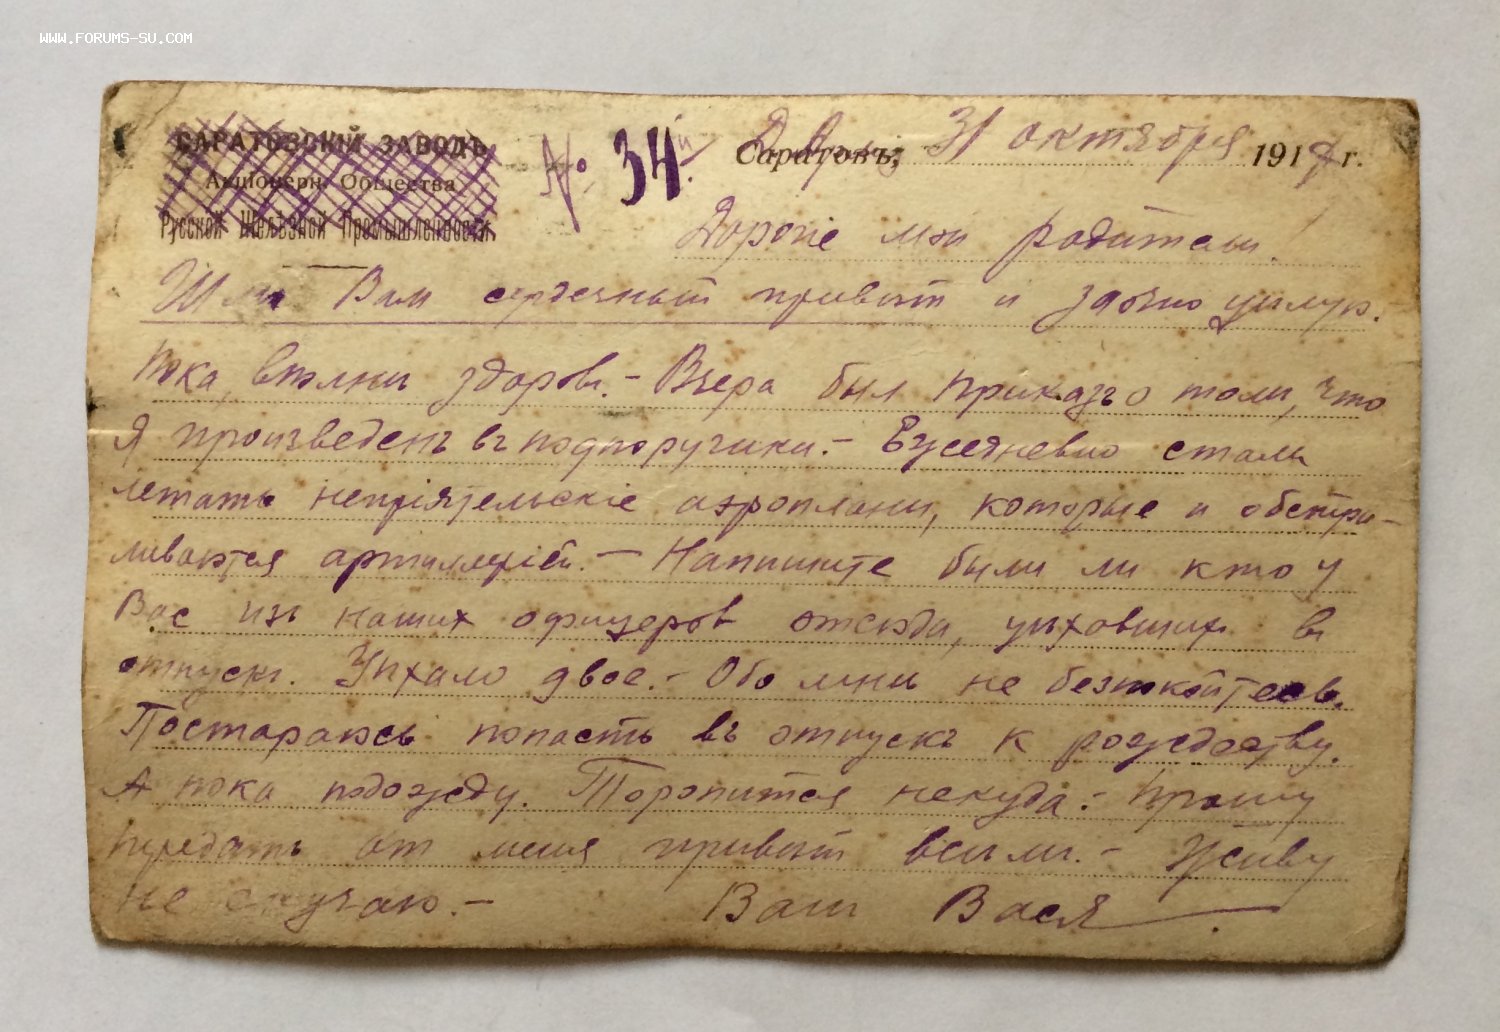 WWW.FORUMS-SU.COM
САРАТОВСКІЙ ЗАВОДЪ
Акціонерн. Общества
Русской Желѣзной Промышленности.
№ 34й
Саратовъ, 31 октября 191 г.
Дорогіе мои родители!
Шлю Вам сердечный привѣт и заочно цѣлую.
Пока вполнѣ здоров. – Вчера был приказъ о том, что
я произведенъ въ подпоручики. – Ежедневно стали
летать непріятельскіе аэропланы, которые и обстрѣ-
ливаются артиллеріей. – Напишите были ли кто у
Вас изъ наших офицеров отсюда, уѣхавших в
отпускъ. Уѣхало двое. – Обо мнѣ не безпокойтесь.
Постараюсь попасть въ отпускъ к рождеству.
А пока подожду. Торопится некуда. – Прошу
передать от меня привѣт всѣм. – Живу
не скучаю. – Ваш Вася